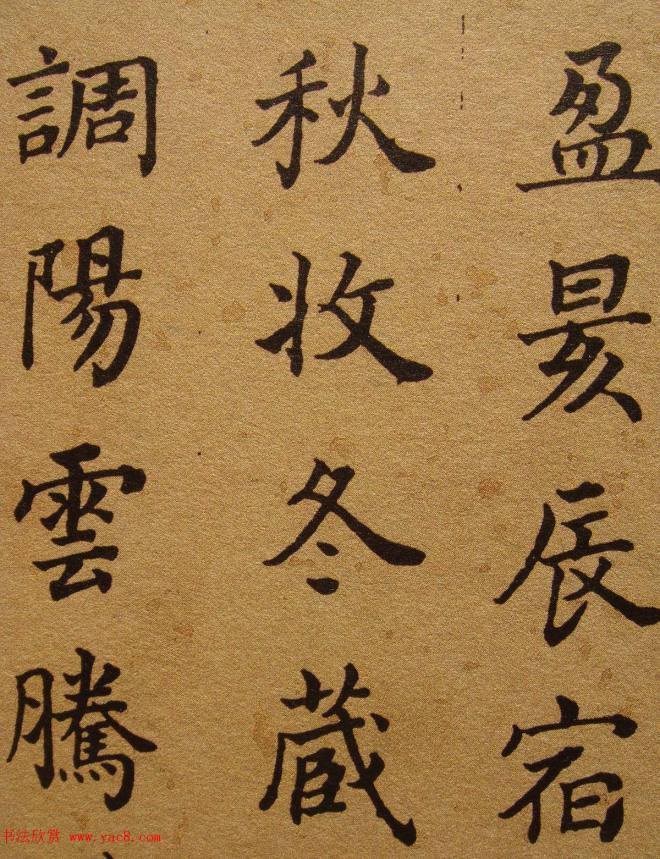 盈昃辰宿
秋收冬藏
調陽雲騰
书法欣赏 www.yac8.com